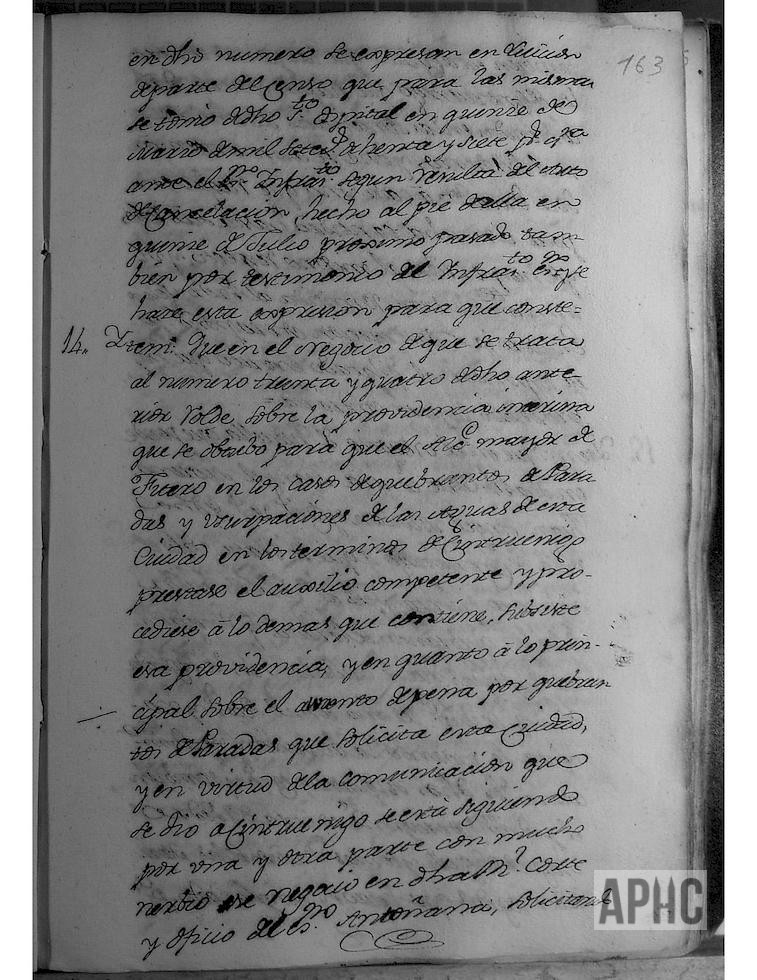 163
en dho numero se expresan en
de parte del Censo que para las mismas
se tomó de dho Sto. Ospital en quinze de
Marzo de mil Setecs. ochenta y siete
ante el Infrasto. segun resulta del Auto
de Cancelacion, hecho al pie de ella en
quinze de Julio proximo pasado, tam-
bien por testimonio del Infrasto. Esno. y se
hace esta expresion para que conste-
14.. Ytem: Que en el Negocio de que se trata
al numero treinta y quatro de dho ante-
rior Rolde, sobre la providencia interina
que se obtubo para que el Alce. mayor de
Fitero en los casos de quebrantos de Para
das y usurpaciones de las Aguas de esta
Ciudad en los terminos de Cintruenigo
prestase el auxilio competente y pro-
cediese à lo demas que contiene, subsiste
esa providencia, y en quanto à lo prin-
cipal sobre el aumento de pena por quebran
tos de Paradas que solicita esta Ciudad,
y en virtud de la comunicacion que
se dio a Cintruenigo se está siguiendo
por una y otra parte con mucho
nerbio ese negocio en dha Rl. Corte
y oficio del Esno. Antoñana, solicitando
APHC